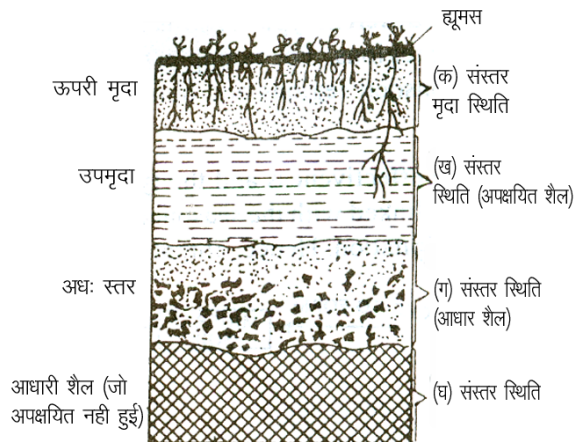 ह्यूमस
ऊपरी मृदा
(क) संस्तर
मृदा स्थिति
उपमृदा
(ख) संस्तर
स्थिति (अपक्षयित शैल)
अधः स्तर
(ग) संस्तर स्थिति
(आधार शैल)
आधारी शैल (जो
अपक्षयित नही हुई)
(घ) संस्तर स्थिति